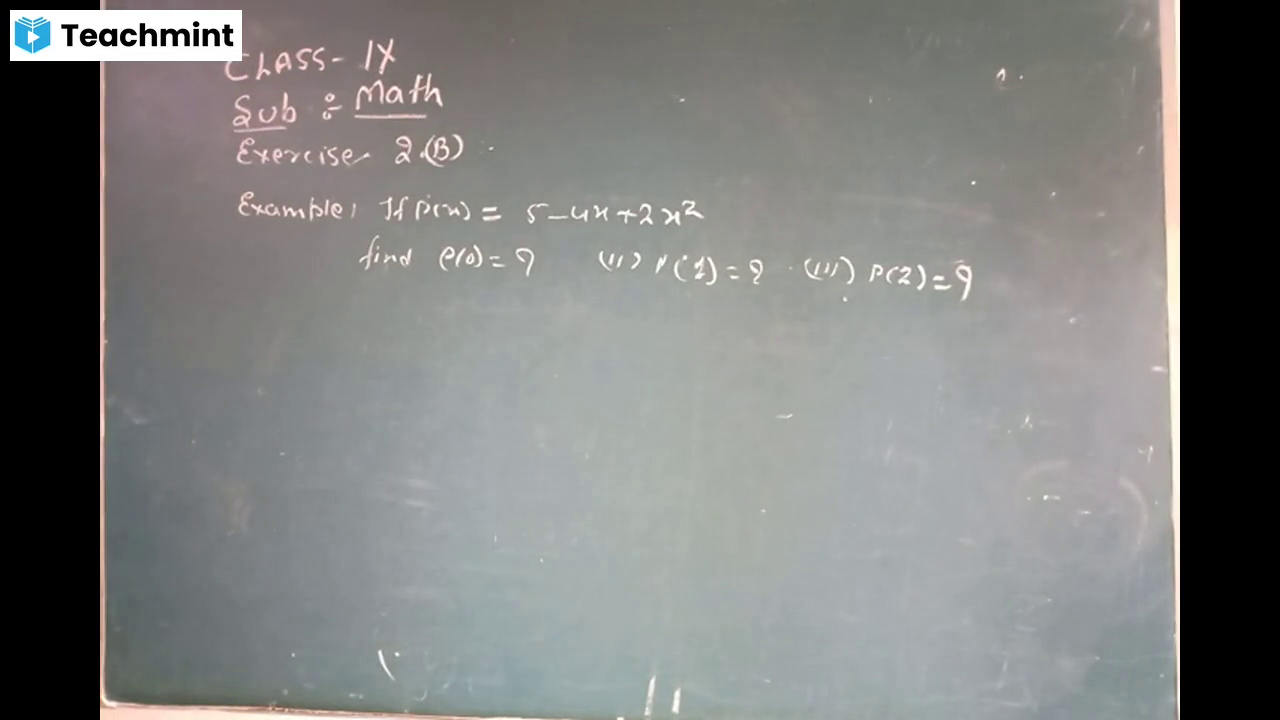 Teachmint
CLASS - IX
Sub : Math
Exercise 2.(B)
Example: If P(x) = 5-4x+2x²
find P(0) = ? (ii) P(1) = ? (iii) P(2) = ?